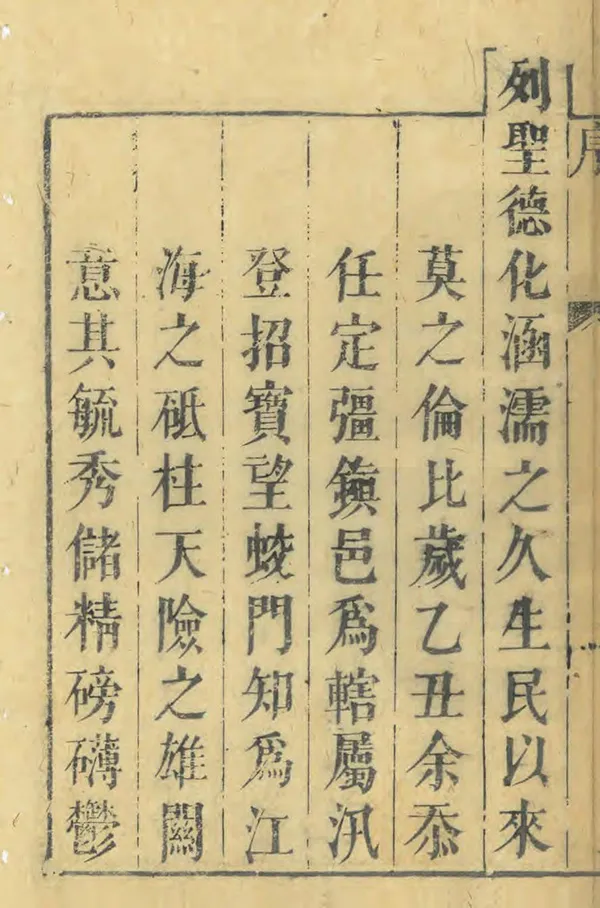 序
列聖德化涵濡之久生民以來
莫之倫比歲乙丑余忝
任定彊鎭邑爲轄屬汛
登招寶望蛟門知爲江
海之砥柱天險之雄關
意其毓秀儲精磅礴鬱